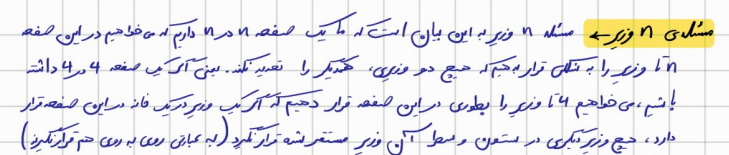 مسئله‌ی n وزیر ← مسئله n وزیر به این بیان است که ما یک صفحه n در n داریم که می‌خواهیم در این صفحه
n تا وزیر را به شکلی قرار بدهیم که هیچ دو وزیری، همدیگر را تهدید نکنند. یعنی اگر یک صفحه 4 در 4 داشته
باشیم، می‌خواهیم 4 تا وزیر را بطوری در این صفحه قرار دهیم که اگر یک وزیر در یک خانه در این صفحه قرار
دارد، هیچ وزیر دیگری در ستون و سطر آن وزیر مستقر شده قرار نگیرد (به عبارتی روی به روی هم قرار نگیرند)